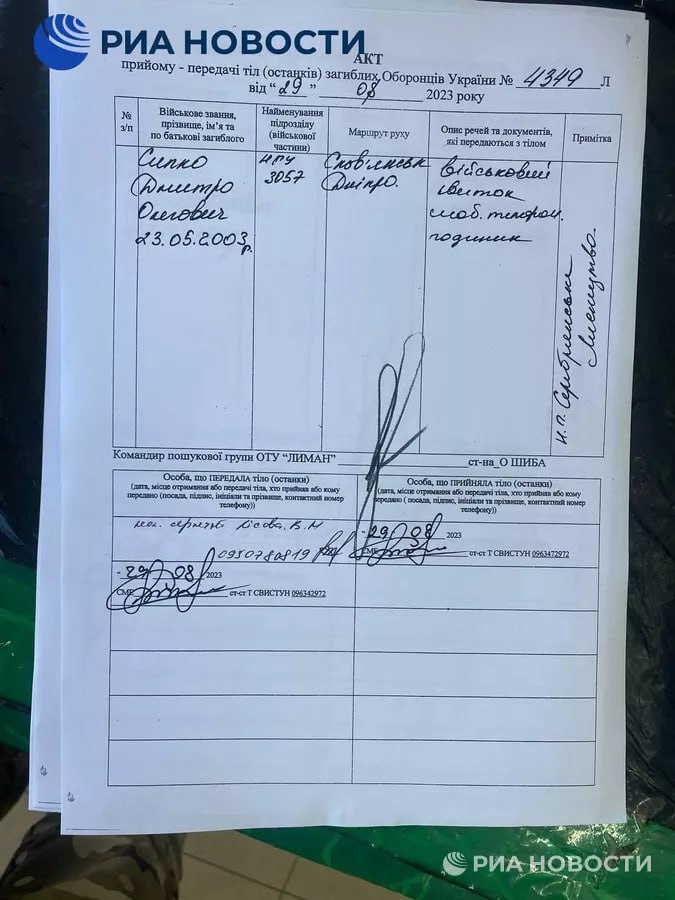 РИА НОВОСТИ
АКТ
прийому - передачі тіл (останків) загиблих Оборонців України № 4349 Л
від “ 29 ” 08 2023 року
№ з/п
Військове звання, прізвище, ім’я та по батькові загиблого
Найменування підрозділу (військової частини)
Маршрут руху
Опис речей та документів, які передаються з тілом
Примітка
Сипко
Дмитро
Олегович
23.05.2003р.
НГУ
3057
Слов'янськ
Дніпро.
військовий
квиток
моб. телефон.
годинник
н.п. Серебрянське
лісництво.
Командир пошукової групи ОТУ “ЛИМАН” ст-на_О ШИБА
Особа, що ПЕРЕДАЛА тіло (останки)
(дата, місце отримання або передачі тіла, хто прийняв або кому
передано (посада, підпис, ініціали та прізвище, контактний номер
телефону))
Особа, що ПРИЙНЯЛА тіло (останки)
(дата, місце отримання або передачі тіла, хто прийняв або кому
передано ( посада, підпис, ініціали та прізвище, контактний номер
телефону))
сержант Лісова В.М
0950780819
29 08 2023
СМЕ ст-ст Т СВИСТУН 0963472972
29 08 2023
СМЕ ст-ст Т СВИСТУН 096342972
РИА НОВОСТИ